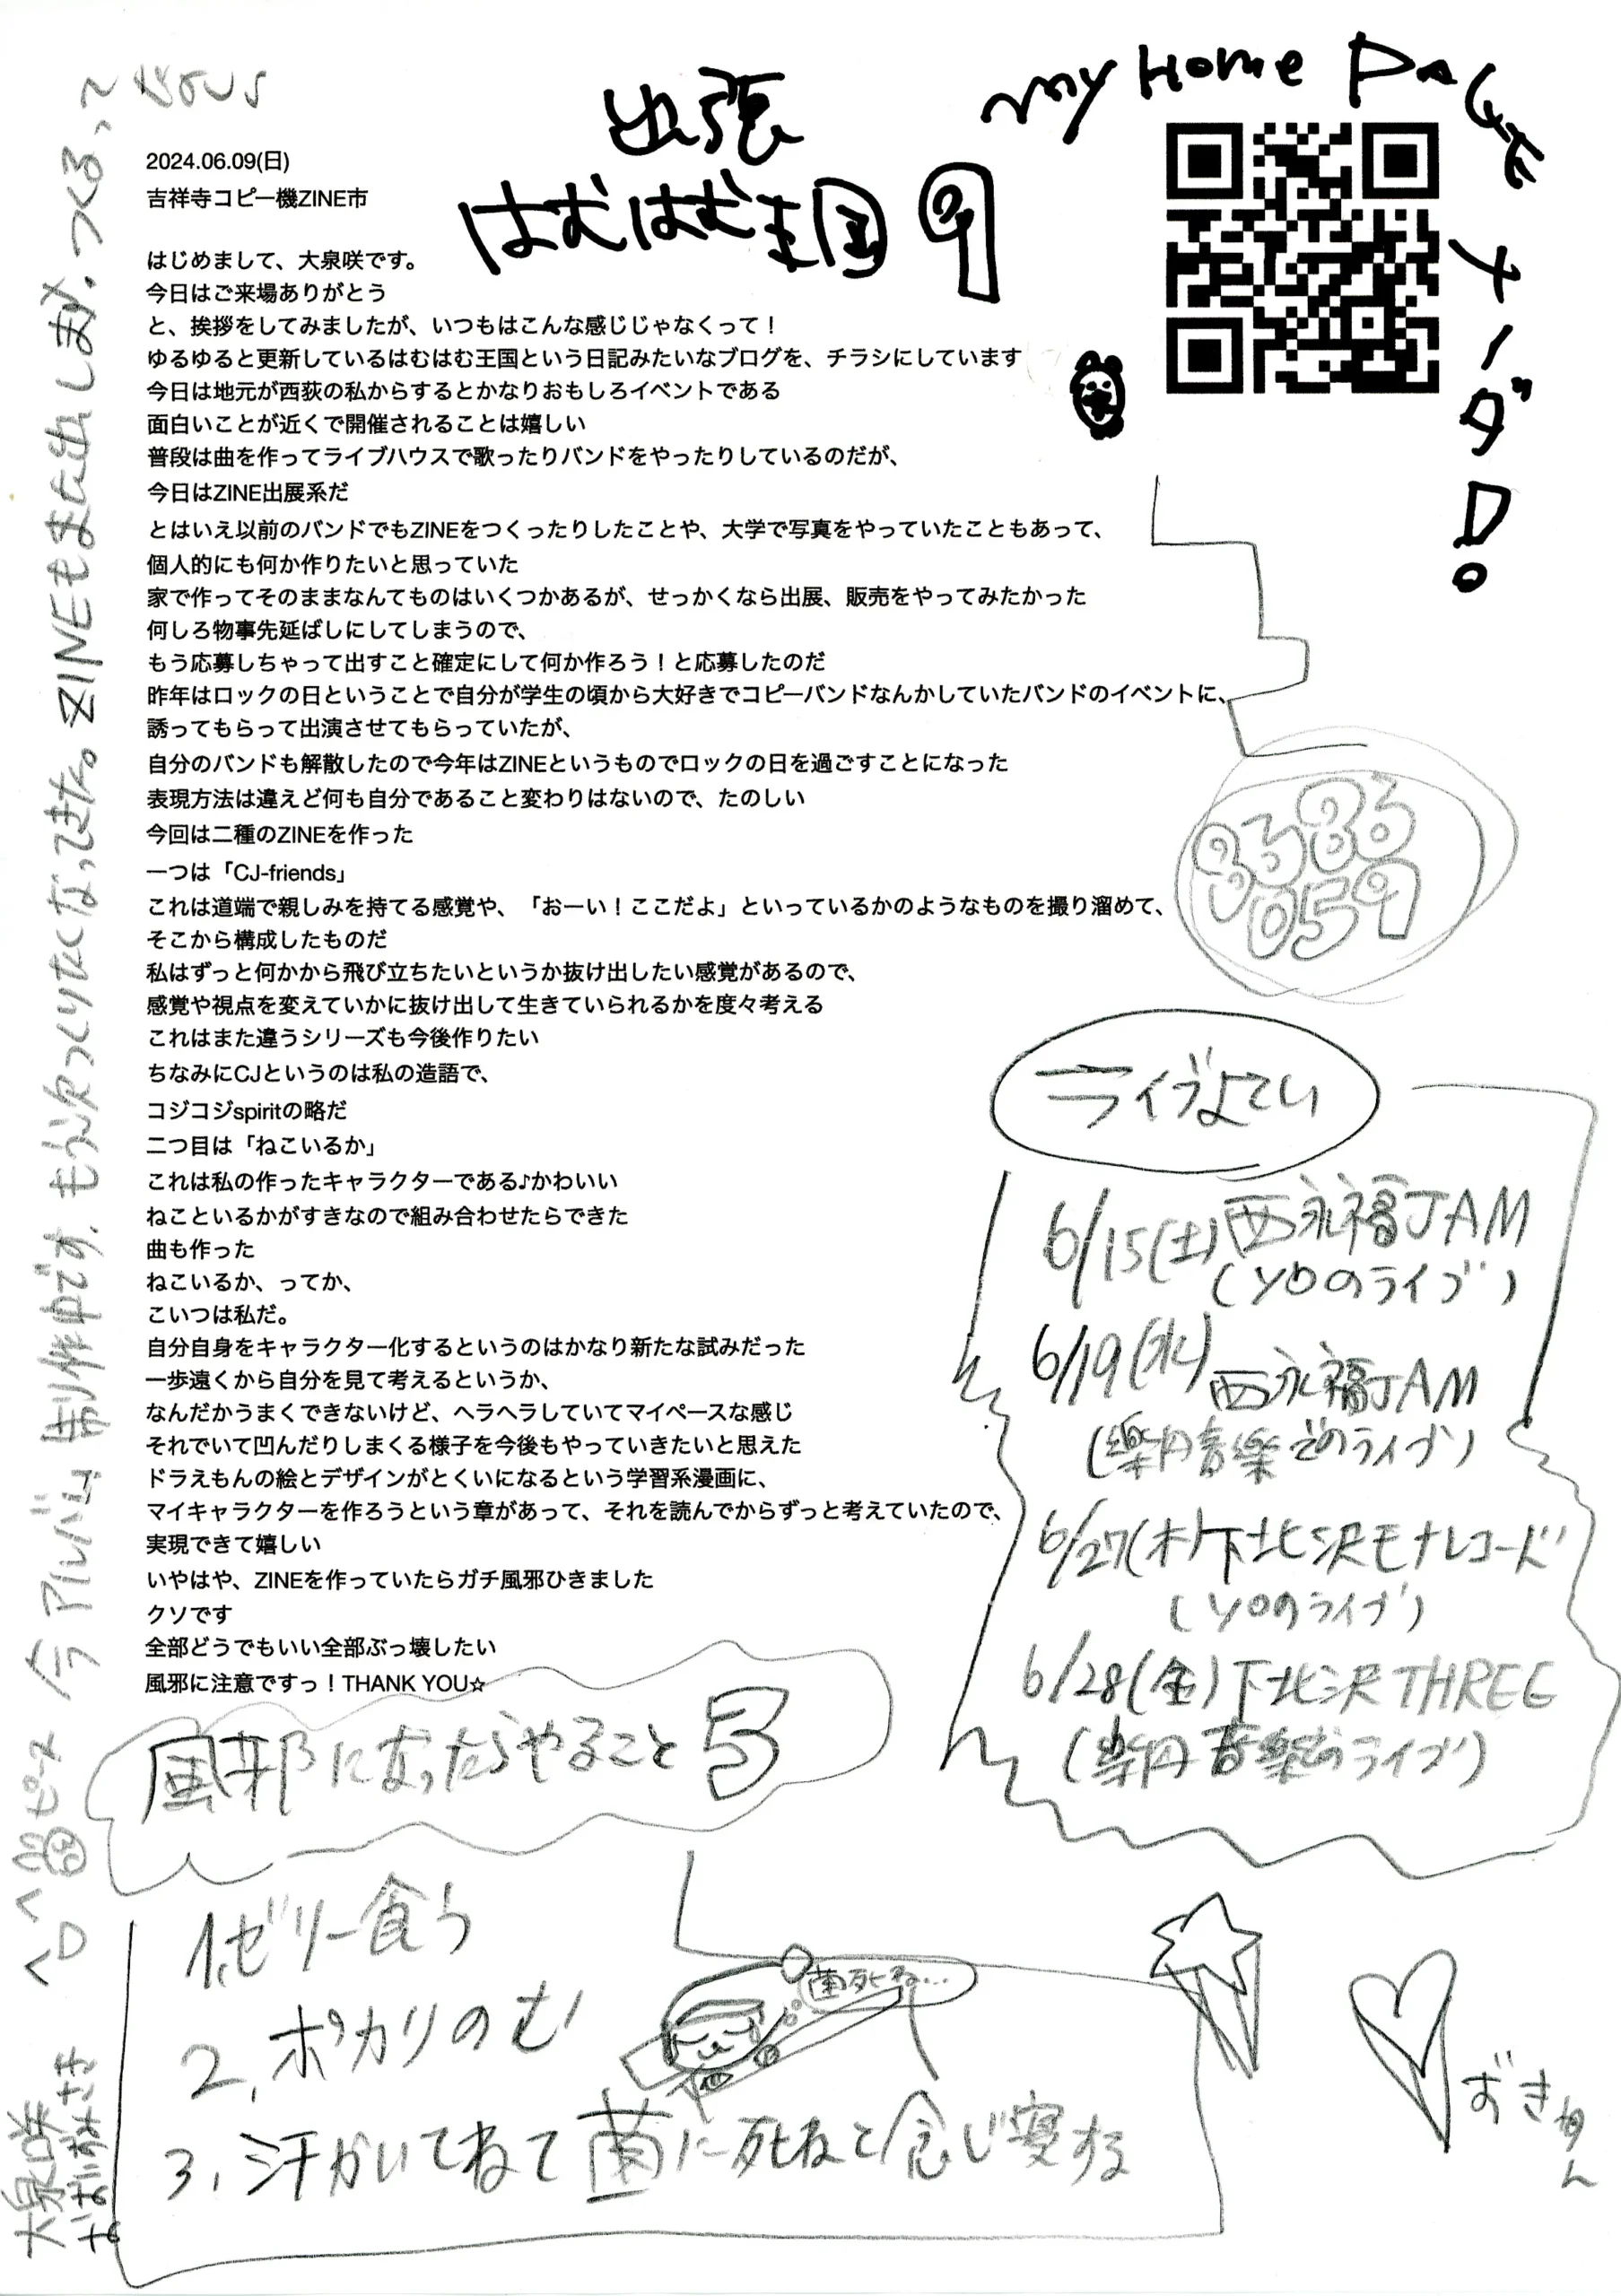 出張
はむはむ王国
My Home PAGE
ナノダ!
2024.06.09(日)
吉祥寺コピー機ZINE市
はじめまして、大泉咲です。
今日はご来場ありがとう
と、挨拶をしてみましたが、いつもはこんな感じじゃなくって！
ゆるゆると更新しているはむはむ王国という日記みたいなブログを、チラシにしています
今日は地元が西荻の私からするとかなりおもしろイベントである
面白いことが近くで開催されることは嬉しい
普段は曲を作ってライブハウスで歌ったりバンドをやったりしているのだが、
今日はZINE出展系だ
とはいえ以前のバンドでもZINEをつくったりしたことや、大学で写真をやっていたこともあって、
個人的にも何か作りたいと思っていた
家で作ってそのままなんてものはいくつかあるが、せっかくなら出展、販売をやってみたかった
何しろ物事先延ばしにしてしまうので、
もう応募しちゃって出すこと確定にして何か作ろう！と応募したのだ
昨年はロックの日ということで自分が学生の頃から大好きでコピーバンドなんかしていたバンドのイベントに、
誘ってもらって出演させてもらっていたが、
自分のバンドも解散したので今年はZINEというものでロックの日を過ごすことになった
表現方法は違えど何も自分であること変わりはないので、たのしい
今回は二種のZINEを作った
一つは「CJ-friends」
これは道端で親しみを持てる感覚や、「おーい！ここだよ」といっているかのようなものを撮り溜めて、
そこから構成したものだ
私はずっと何かから飛び立ちたいというか抜け出したい感覚があるので、
感覚や視点を変えていかに抜け出して生きていられるかを度々考える
これはまた違うシリーズも今後作りたい
ちなみにCJというのは私の造語で、
コジコジspiritの略だ
二つ目は「ねこいるか」
これは私の作ったキャラクターである♪かわいい
ねこといるかがすきなので組み合わせたらできた
曲も作った
ねこいるか、ってか、
こいつは私だ。
自分自身をキャラクター化するというのはかなり新たな試みだった
一歩遠くから自分を見て考えるというか、
なんだかうまくできないけど、ヘラヘラしていてマイペースな感じ
それでいて凹んだりしまくる様子を今後もやっていきたいと思えた
ドラえもんの絵とデザインがとくいになるという学習系漫画に、
マイキャラクターを作ろうという章があって、それを読んでからずっと考えていたので、
実現できて嬉しい
いやはや、ZINEを作っていたらガチ風邪ひきました
クソです
全部どうでもいい全部ぶっ壊したい
風邪に注意ですっ！THANK YOU☆
ライブよてい
6/15(土)西永福JAM
(YOのライブ)
6/19(水)西永福JAM
音楽でのライブ)
6/27(木)下北沢モナレコード
(YOのライブ)
6/28(金)下北沢THREE
音楽でのライブ)
風邪になったらやること3
1.ゼリー食う
2.ポカリのむ
菌死ね...
3.汗かいてねて菌に死ねと念じ寝する
大泉咲
おおいずみさき
ピース
今アルバム制作中です。もう次つくりたくなってきた。ZINEもまた出します。つくるって